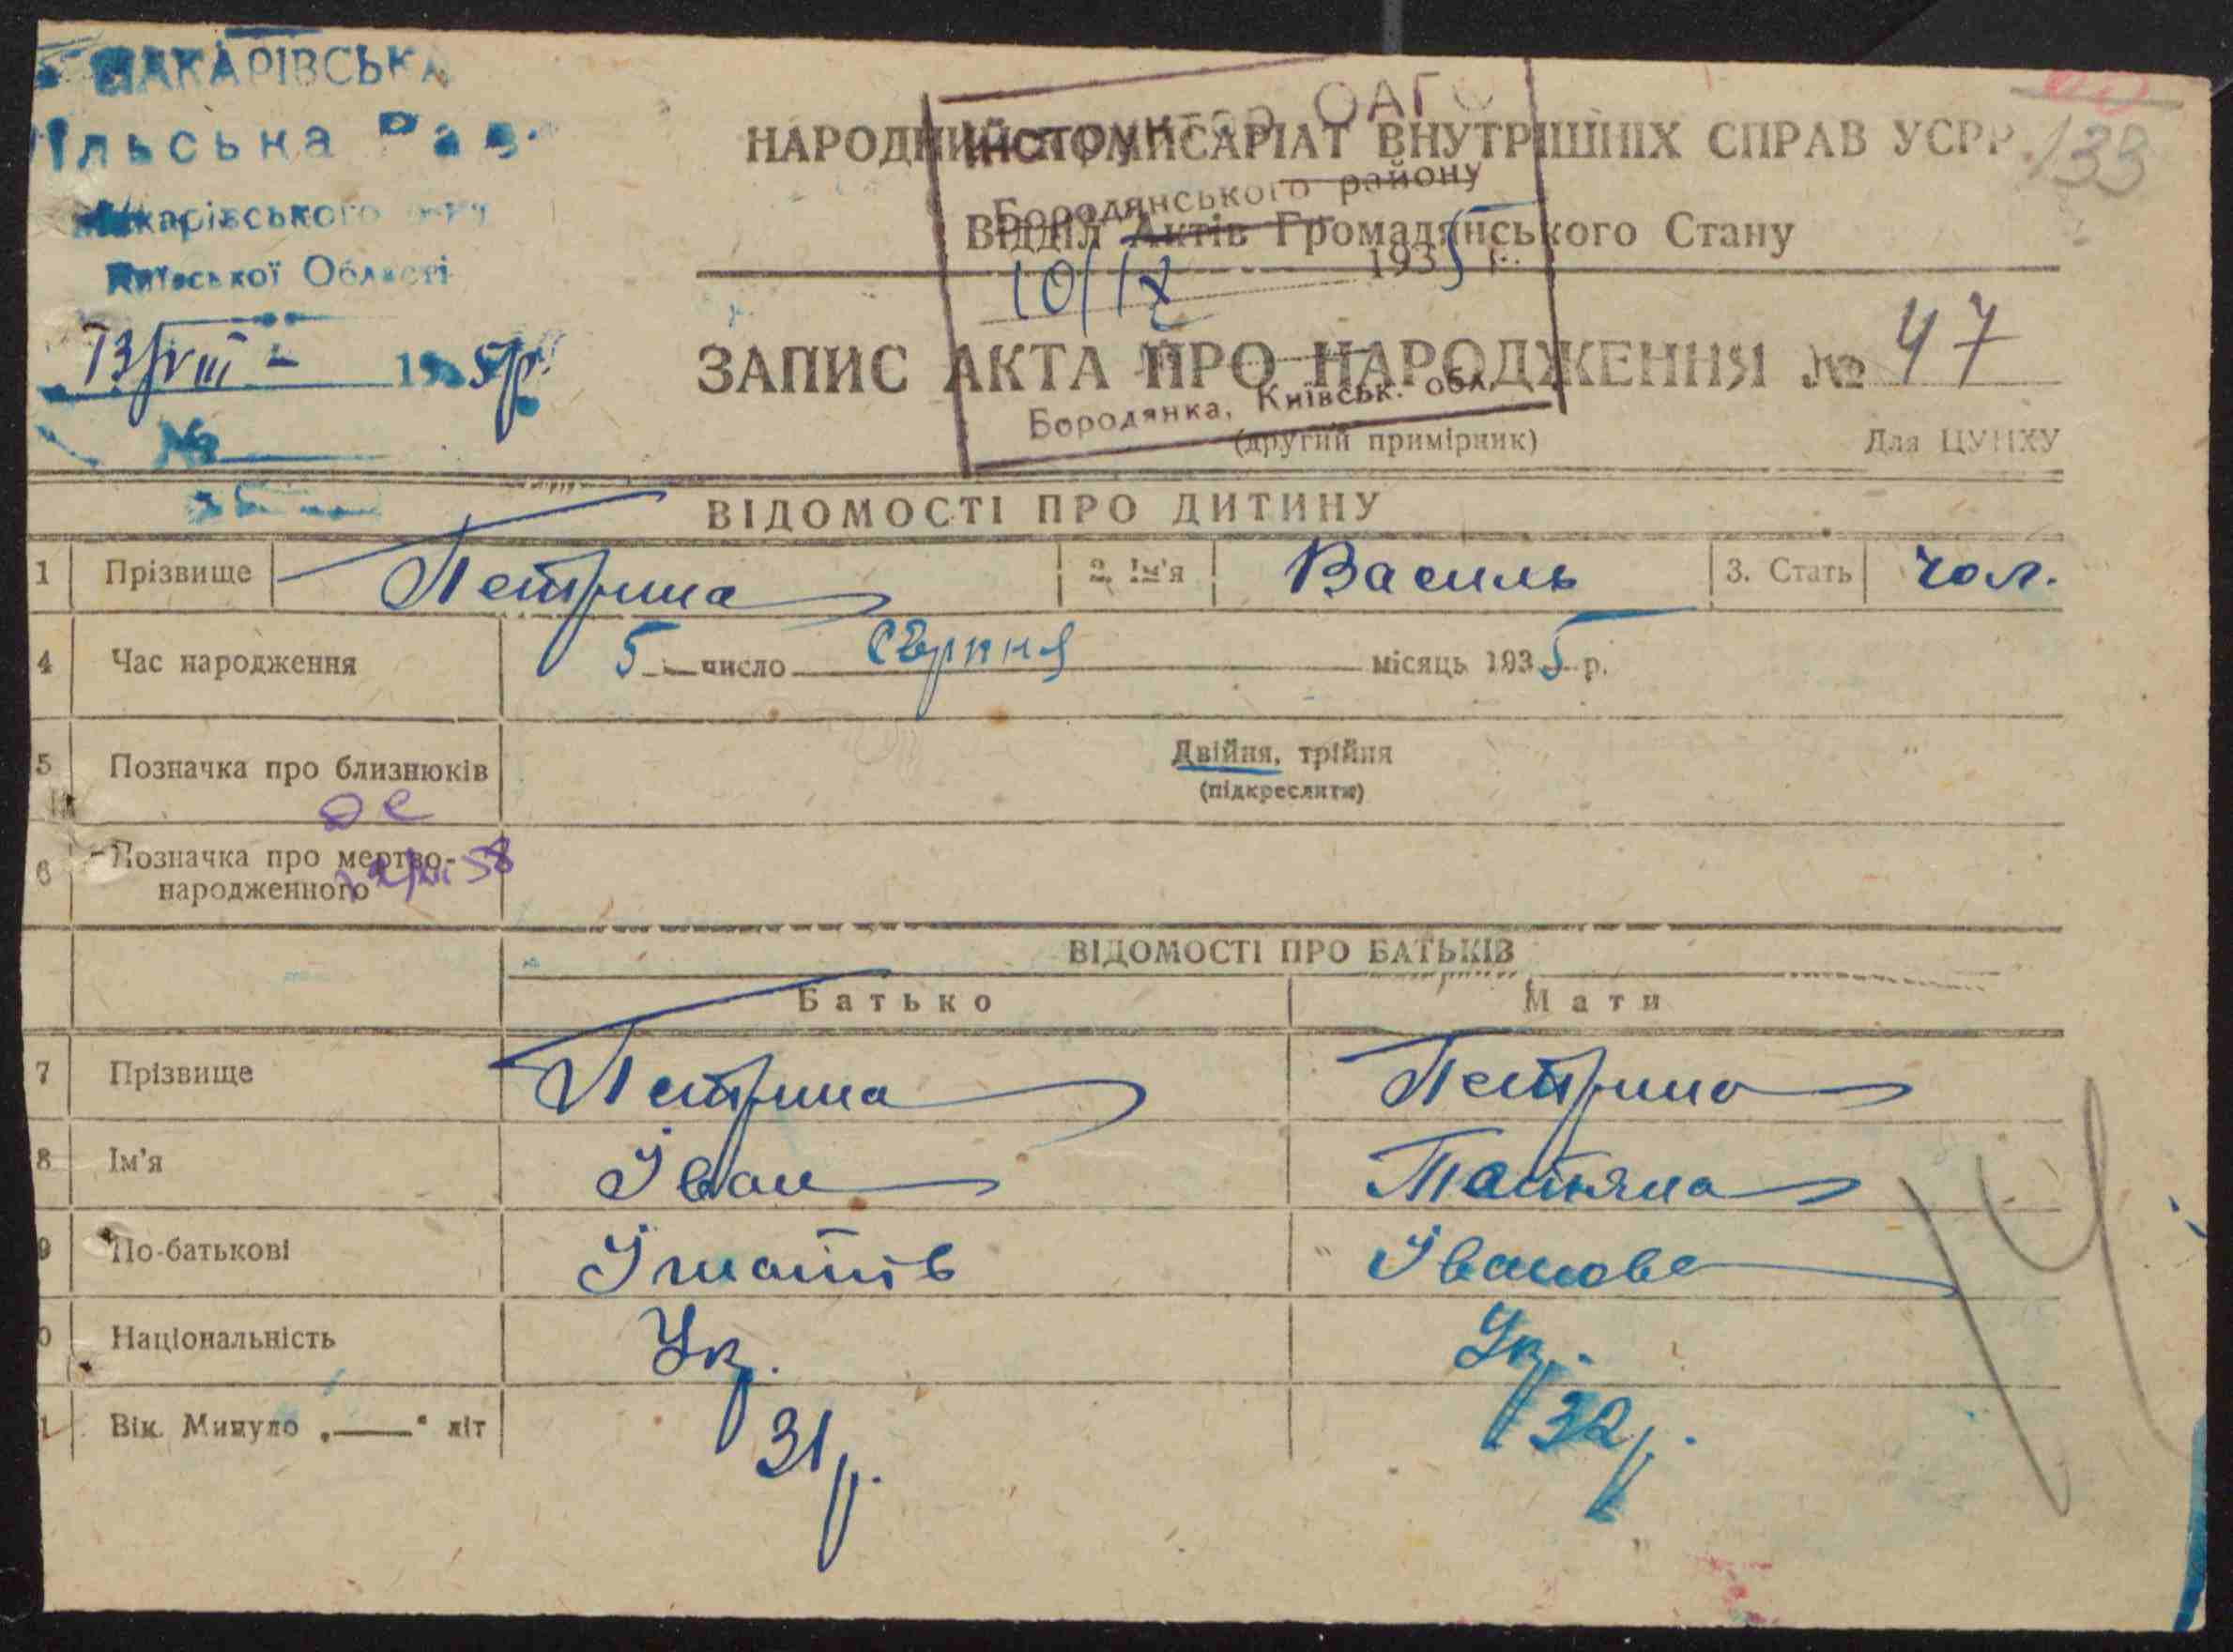 МАКАРІВСЬКА
ільська Рад
Макарівського
Київської Області
13/VIII - 1935р.
№
НАРОДНИЙ КОМІСАРІАТ ВНУТРІШНІХ СПРАВ УСРР
133
Відділ Актів Громадянського Стану
Інструктор ОАГС
Бородянського району
10/IX 1935 г.
Бородянка, Київськ. обл.
ЗАПИС АКТА ПРО НАРОДЖЕННЯ № 47
(другий примірник) Для ЦУНХУ
ВІДОМОСТІ ПРО ДИТИНУ
1 Прізвище Петрина 2. Ім'я Василь 3. Стать чол.
4 Час народження 5 число серпня місяць 1935 р.
5 Позначка про близнюків Двійня, трійня
(підкреслити)
6 Позначка про мертво-
народженного
ВІДОМОСТІ ПРО БАТЬКІВ
Батько Мати
7 Прізвище Петрина Петрина
8 Ім'я Іван Татяна
9 По-батькові Ігнатів Іванова
0 Національність Укр. Укр.
1 Вік. Минуло „——" літ 31 р. 32 р.